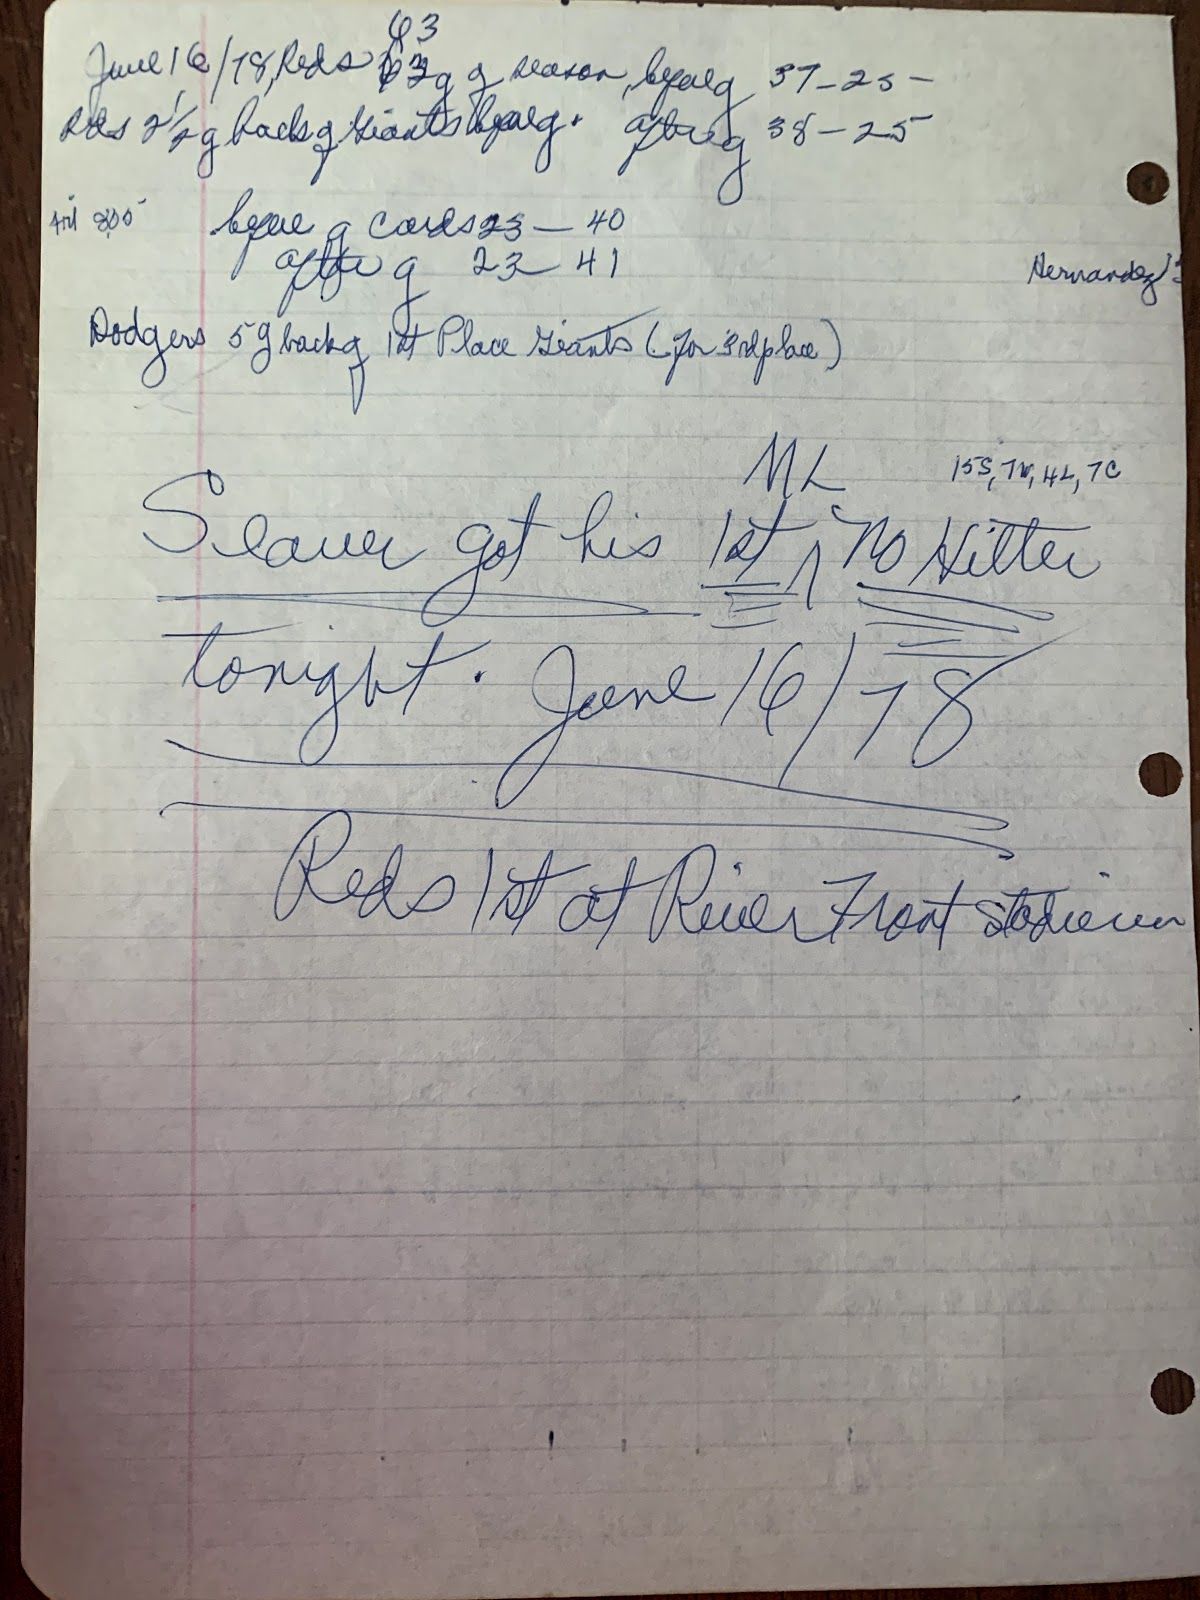 63
June 16/78, Reds g of season, before g 37-25-
Reds 2 1/2 g back of Giants before g. after g 38-25
Fri 8,05 before g Cards 23-40
after g 23-41
Hernandez
Dodgers 5 g back of 1st Place Giants (for 3rd place)
ML 15S, 7W, 4L, 7C
Seaver got his 1st "No Hitter
tonight. June 16/78
Reds 1st at River Front Stadium